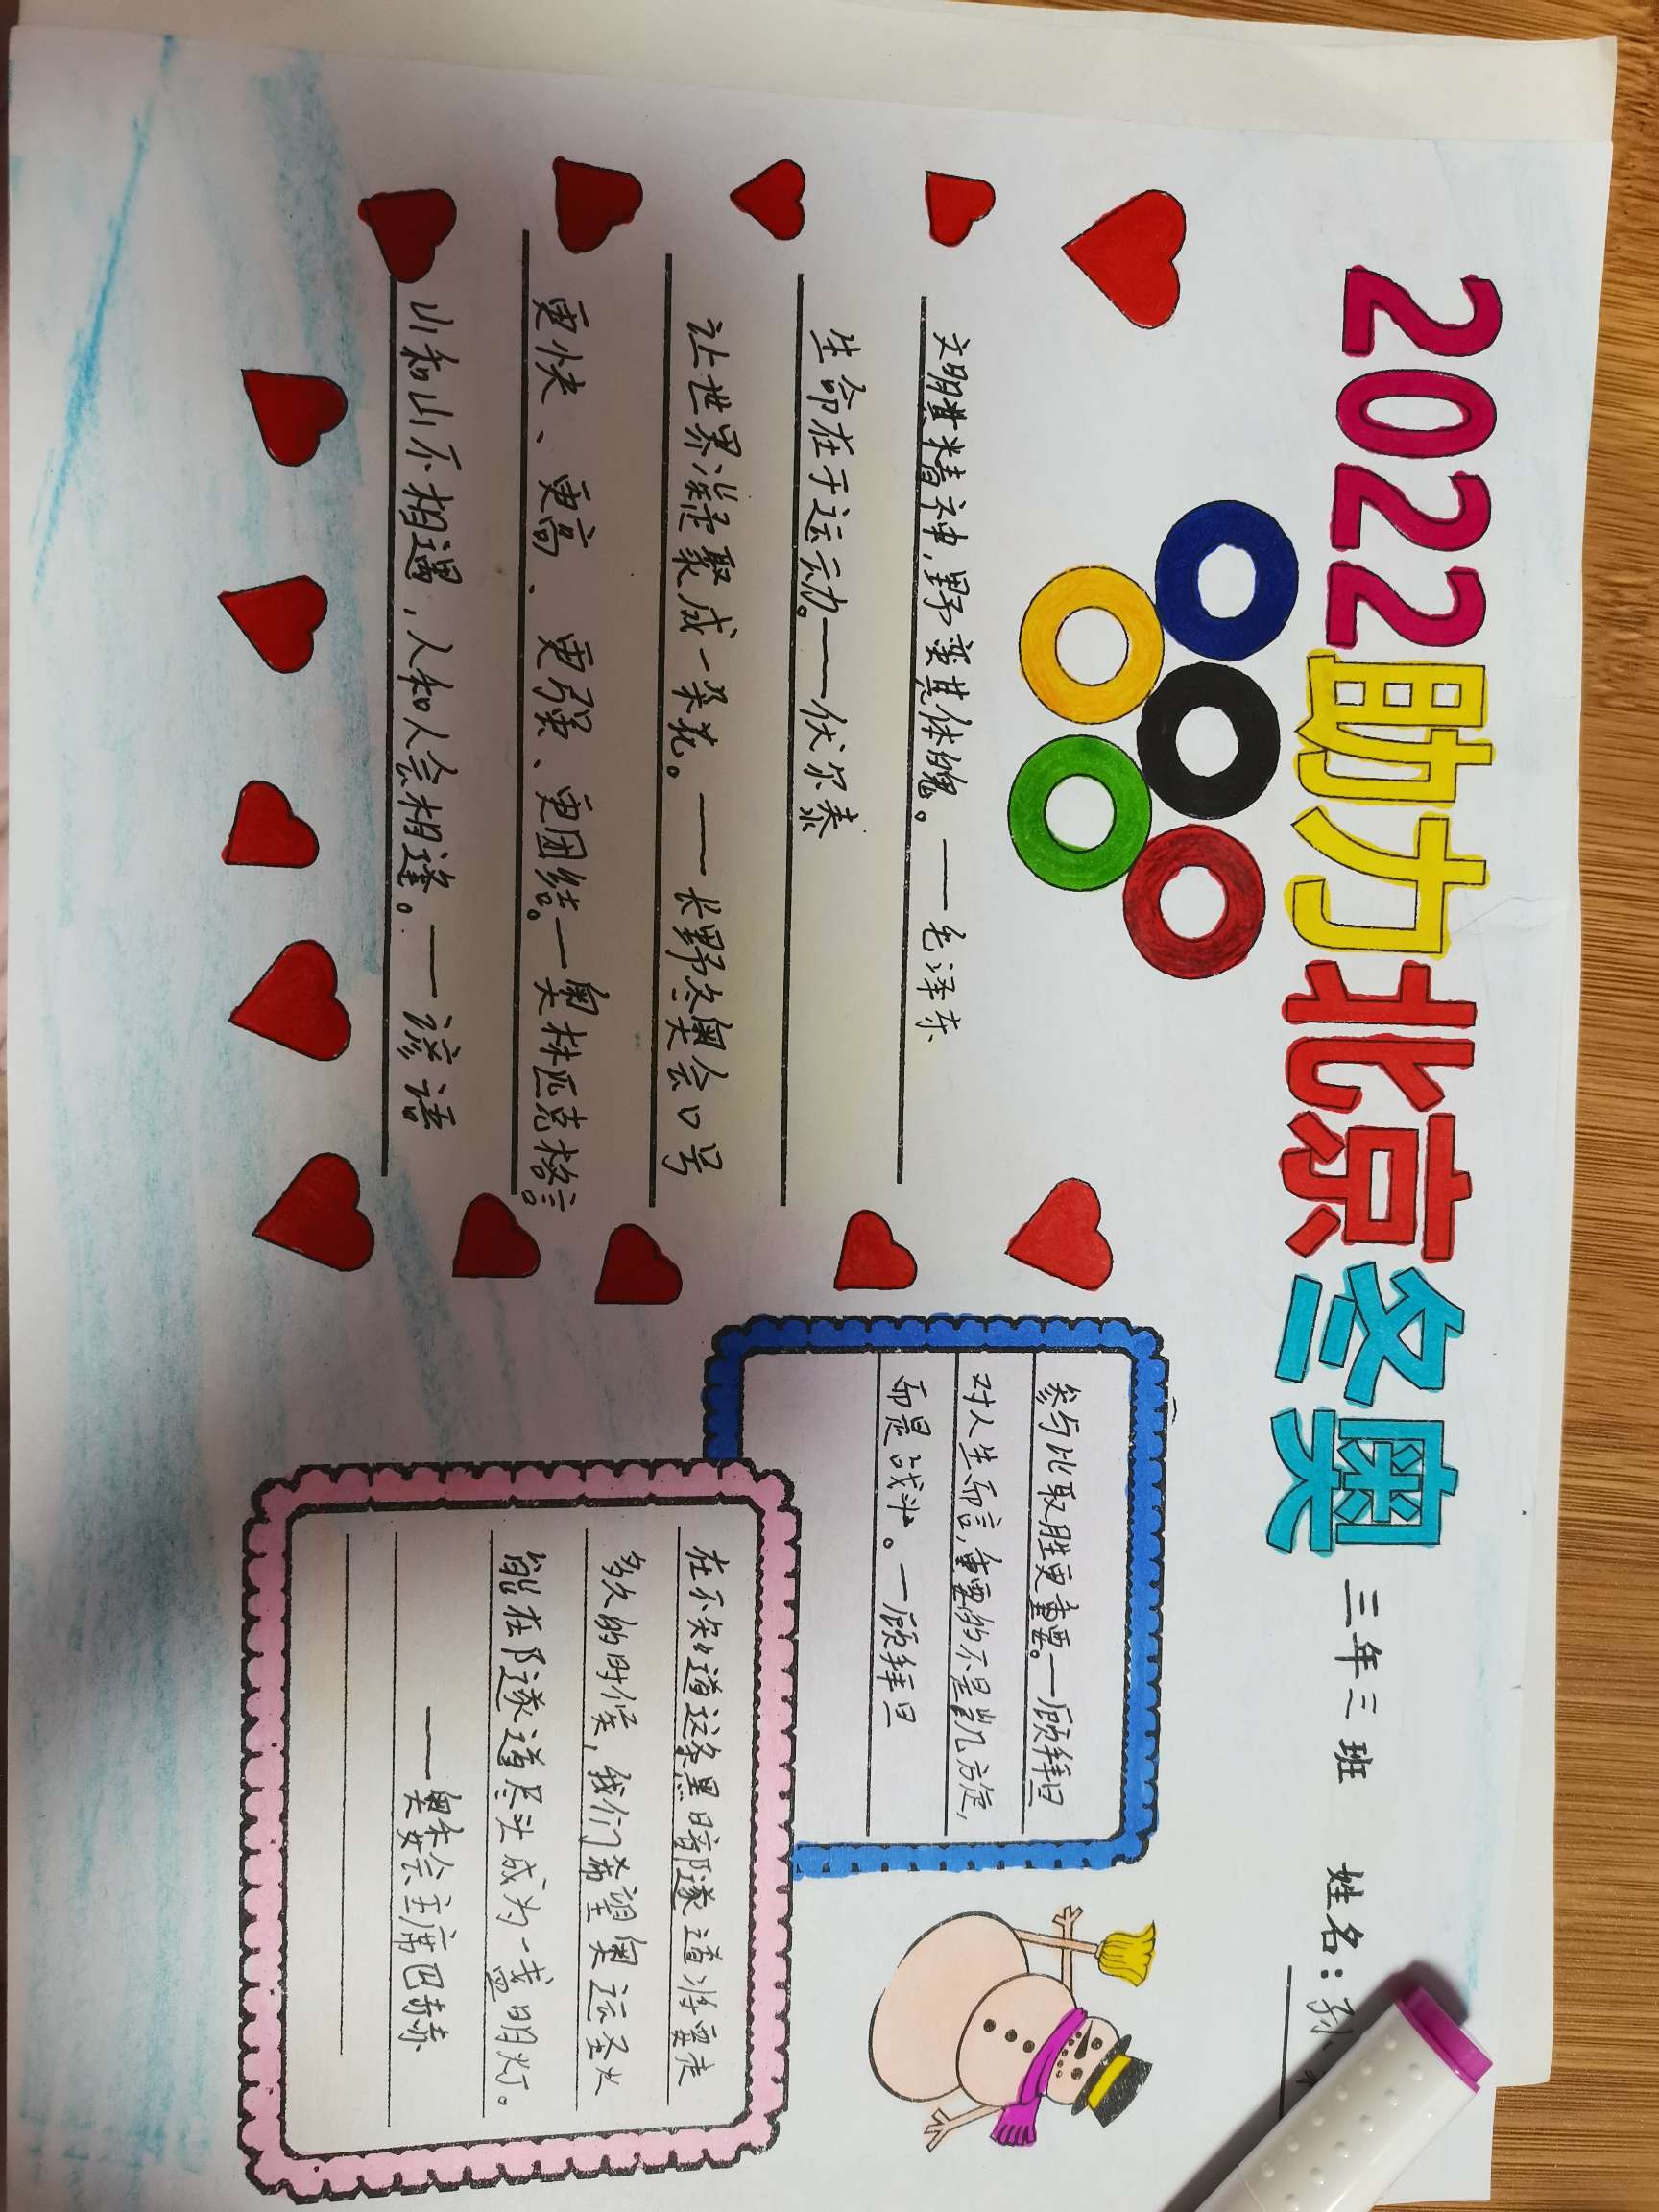 2022助力北京冬奥
三年三班 姓名:孙
文明其精神,野蛮其体魄。——毛泽东
生命在于运动。——伏尔泰
让世界凝聚成一朵花。——长野冬奥会口号
更快、更高、更强、更团结。—奥林匹克格言。
山和山不相遇,人和人会相逢。——谚语
参与比取胜更重要。—顾拜旦
对人生而言,重要的不是凯方旋,
而是战斗。—顾拜旦
在不知道这条黑暗隧道将要走
多久的时候,我们希望奥运圣火
能在隧道尽头成为一盏明灯。
——奥委会主席巴赫